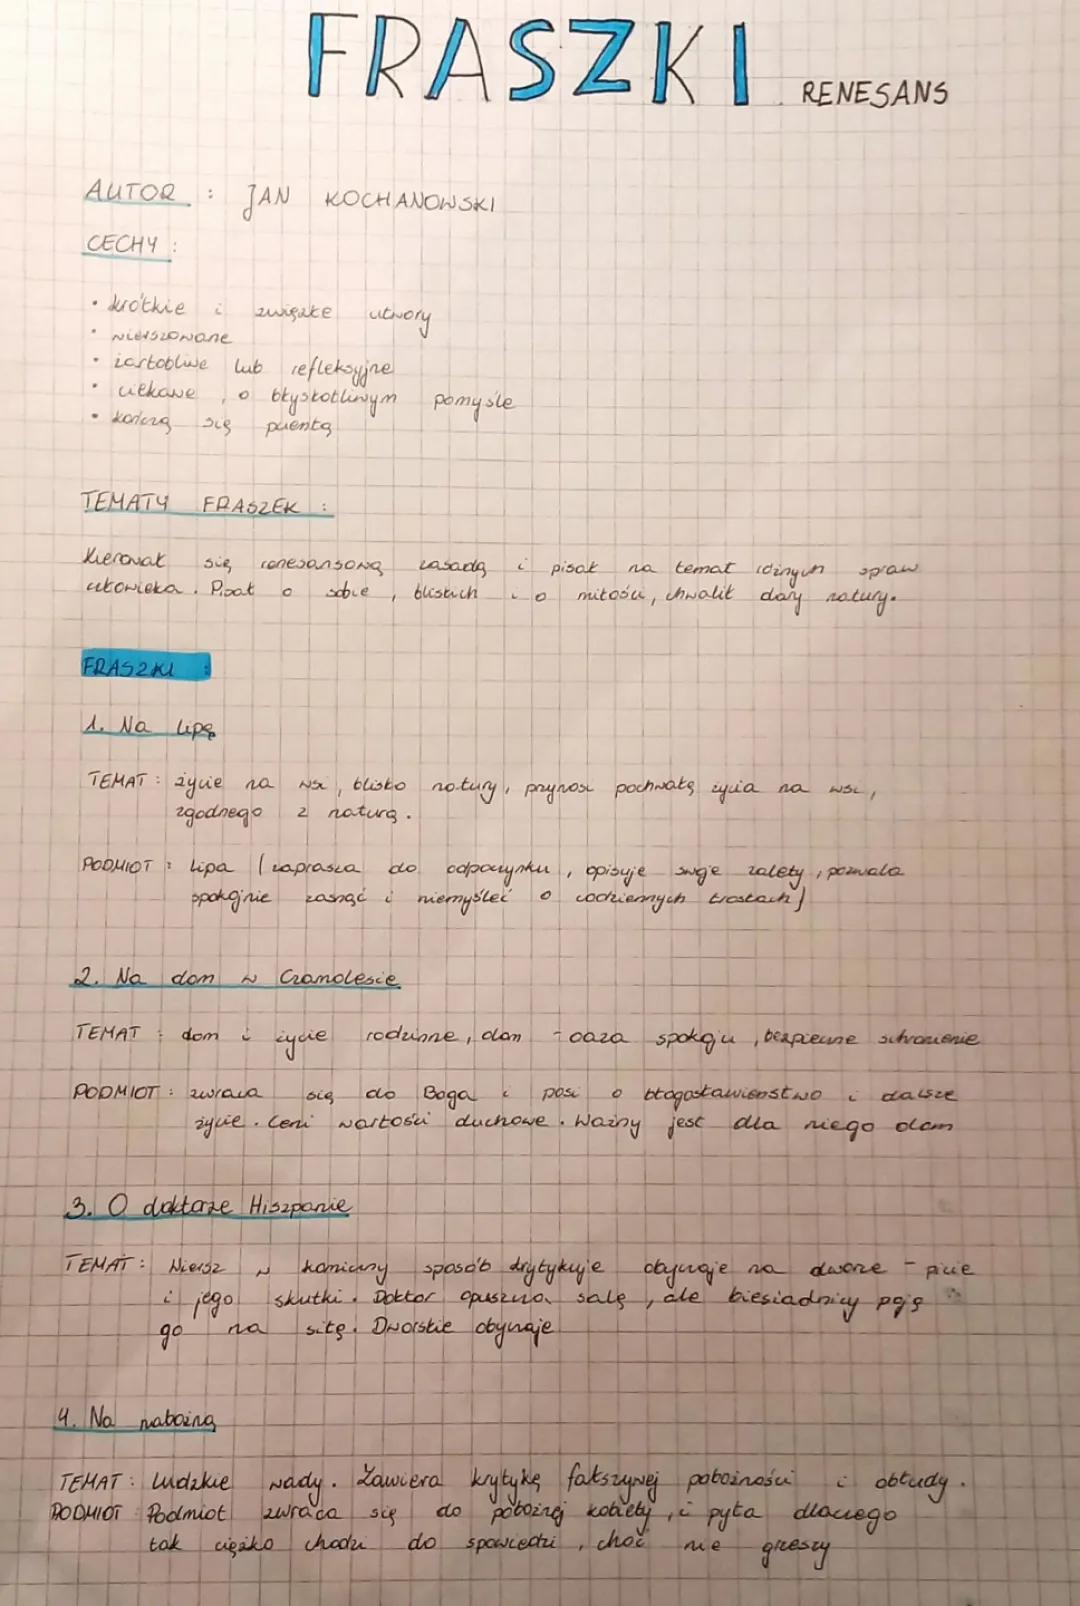 FRASZKI RENESANS
AUTOR : JAN KOCHANOWSKI
CECHY :
• krótkie i zwięzłe utwory
• wierszowane
• żartobliwe lub refleksyjne
• ciekawe, o błyskotliwym pomyśle
• kończą się puentą
TEMATY FRASZEK :
Kierował się renesansową zasadą i pisał na temat różnych spraw
człowieka. Pisał o sobie, bliskich i o miłości, chwalił dary natury.
FRASZKI :
1. Na lipę
TEMAT : życie na wsi, blisko natury, przynosi pochwałę życia na wsi,
zgodnego z naturą.
PODMIOT : Lipa (zaprasza do odpoczynku, opisuje swoje zalety, pozwala
spokojnie zasnąć i niemyśleć o codziennych troskach)
2. Na dom w Czarnolesie
TEMAT : dom i życie rodzinne, dom - oaza spokoju, bezpieczne schronienie
PODMIOT : zwraca się do Boga i posi o błogosławieństwo i dalsze
życie. Ceni wartości duchowe. Ważny jest dla niego dom
3. O doktorze Hiszpanie
TEMAT : Wiersz w komiczny sposób krytykuje obyczaje na dworze - picie
i jego skutki. Doktor opuszcza salę, ale biesiadnicy poją
go na siłę. Dworskie obyczaje
4. Na nabożną
TEMAT : Ludzkie wady. Zawiera krytykę fałszywej pobożności i obłudy.
PODMIOT Podmiot zwraca się do pobożnej kobiety, i pyta dlaczego
tak ciężko chodzi do spowiedzi, choć nie grzeszy